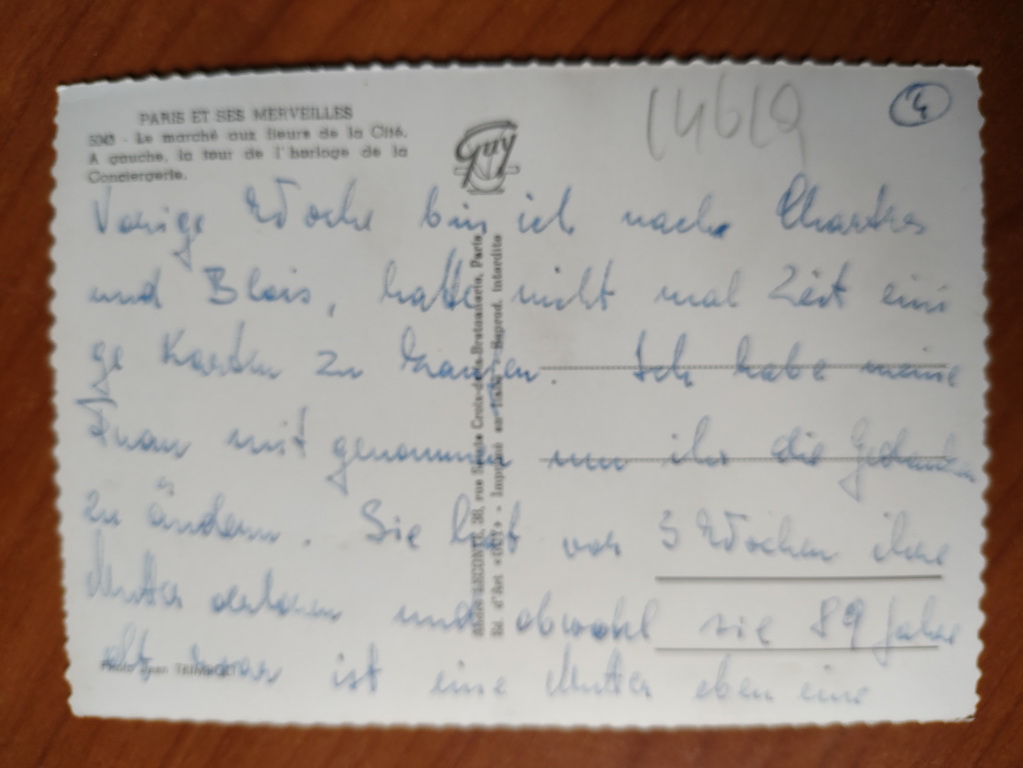 PARIS ET SES MERVEILLES
Le marché aux fleurs de la Cité.
A gauche, la tour de l'horloge de la
Conciergerie.
Guy
14619
4
Vorige Woche bin ich nach Chartres
und Blois, hatte nicht mal Zeit eini
ge Karten zu kaufen. Ich habe meine
Frau mit genommen um ihr die Gedanken
zu ändern. Sie hat vor 3 Wochen ihre
Mutter verloren und obwohl sie 89 Jahre
alt war ist eine Mutter eben eine
rue Sainte Croix-de-la-Bretonnerie, Paris
Ed. d'Art «GUY» - Imprimé en - Reprod. interdite